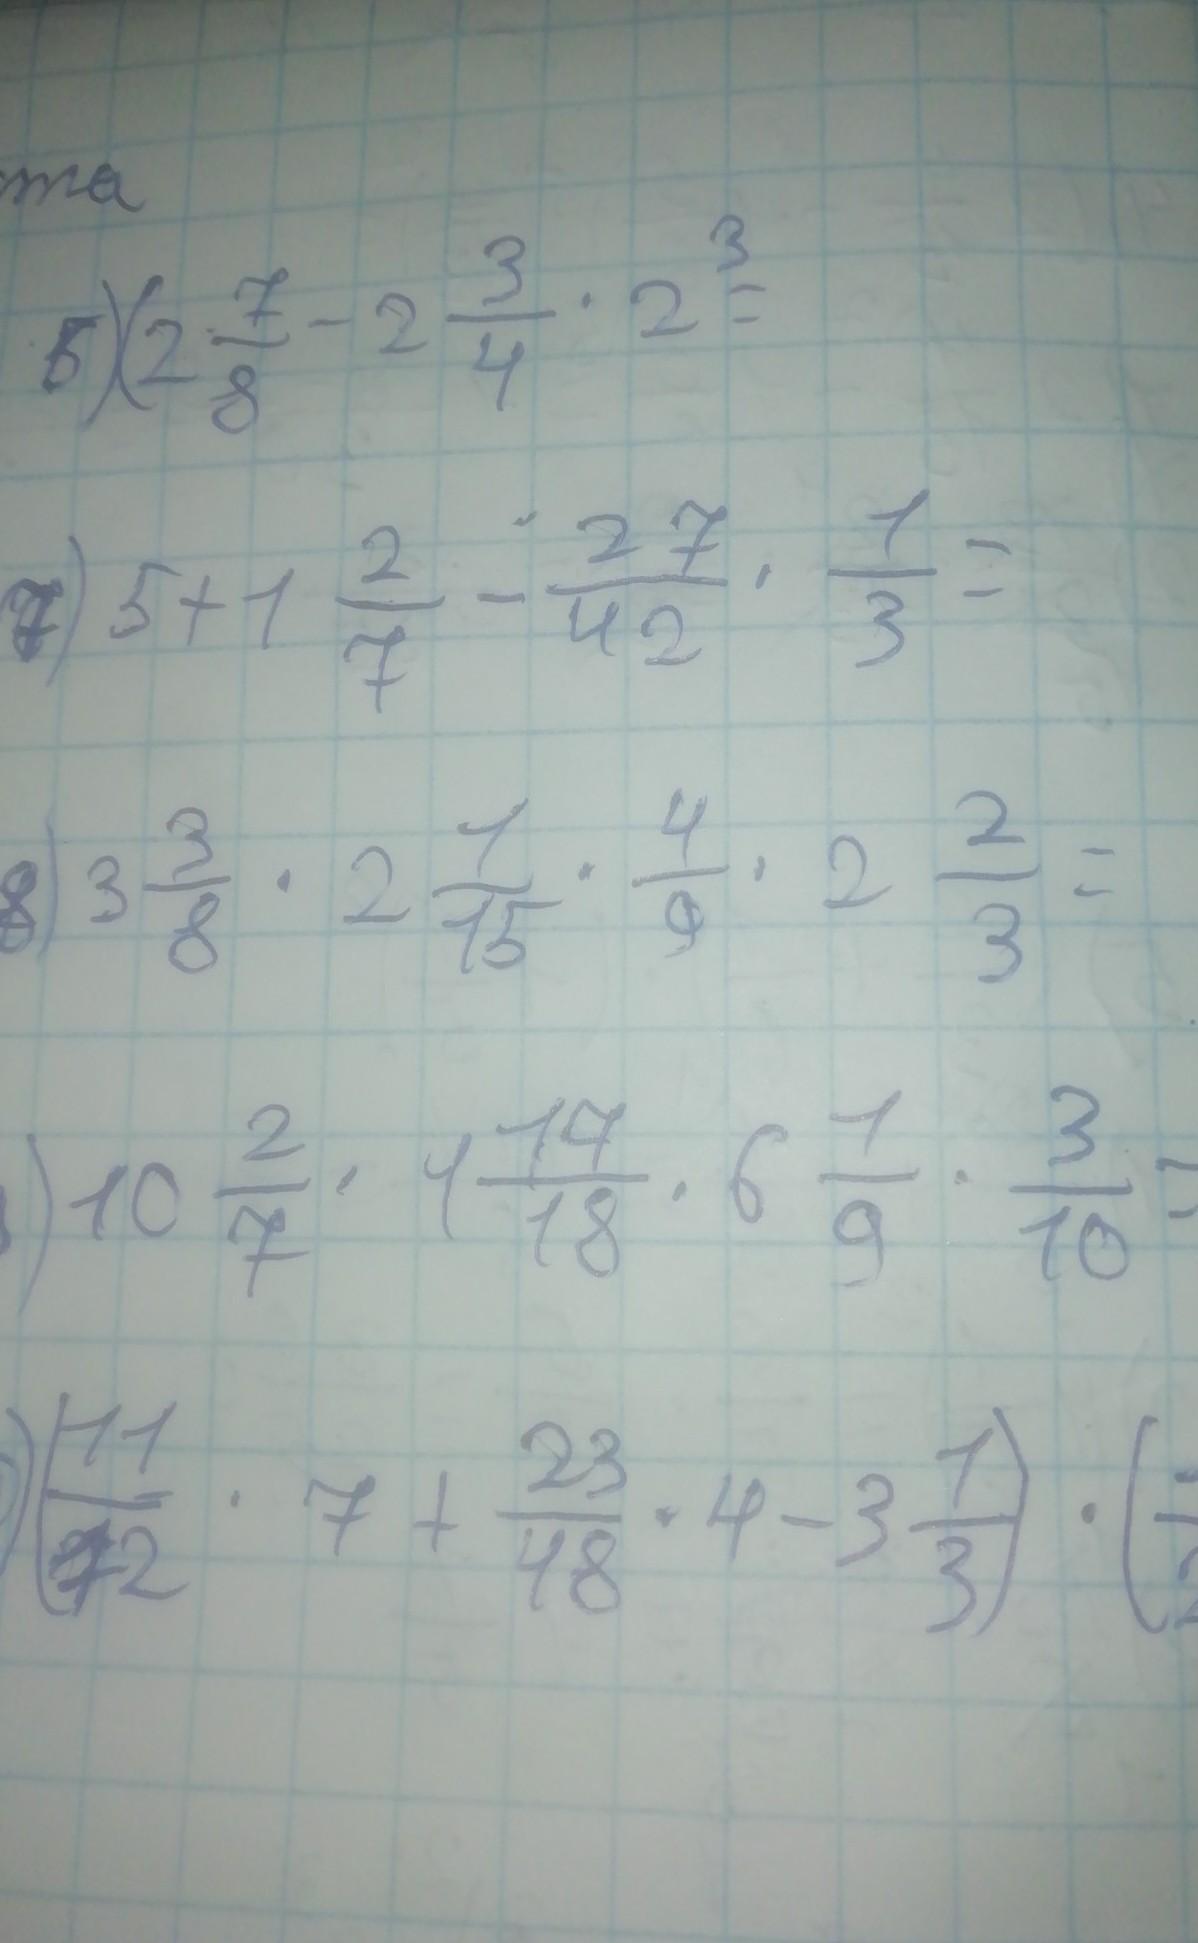 та
5) (2 7/8 - 2 3/4 · 2³ =
7) 5 + 1 2/7 - 27/42 · 1/3 =
8) 3 3/8 · 2 1/15 · 4/9 · 2 2/3 =
) 10 2/7 · 1 17/18 · 6 1/9 · 3/10 =
) (11/12 · 7 + 23/48 · 4 - 3 1/3) · (